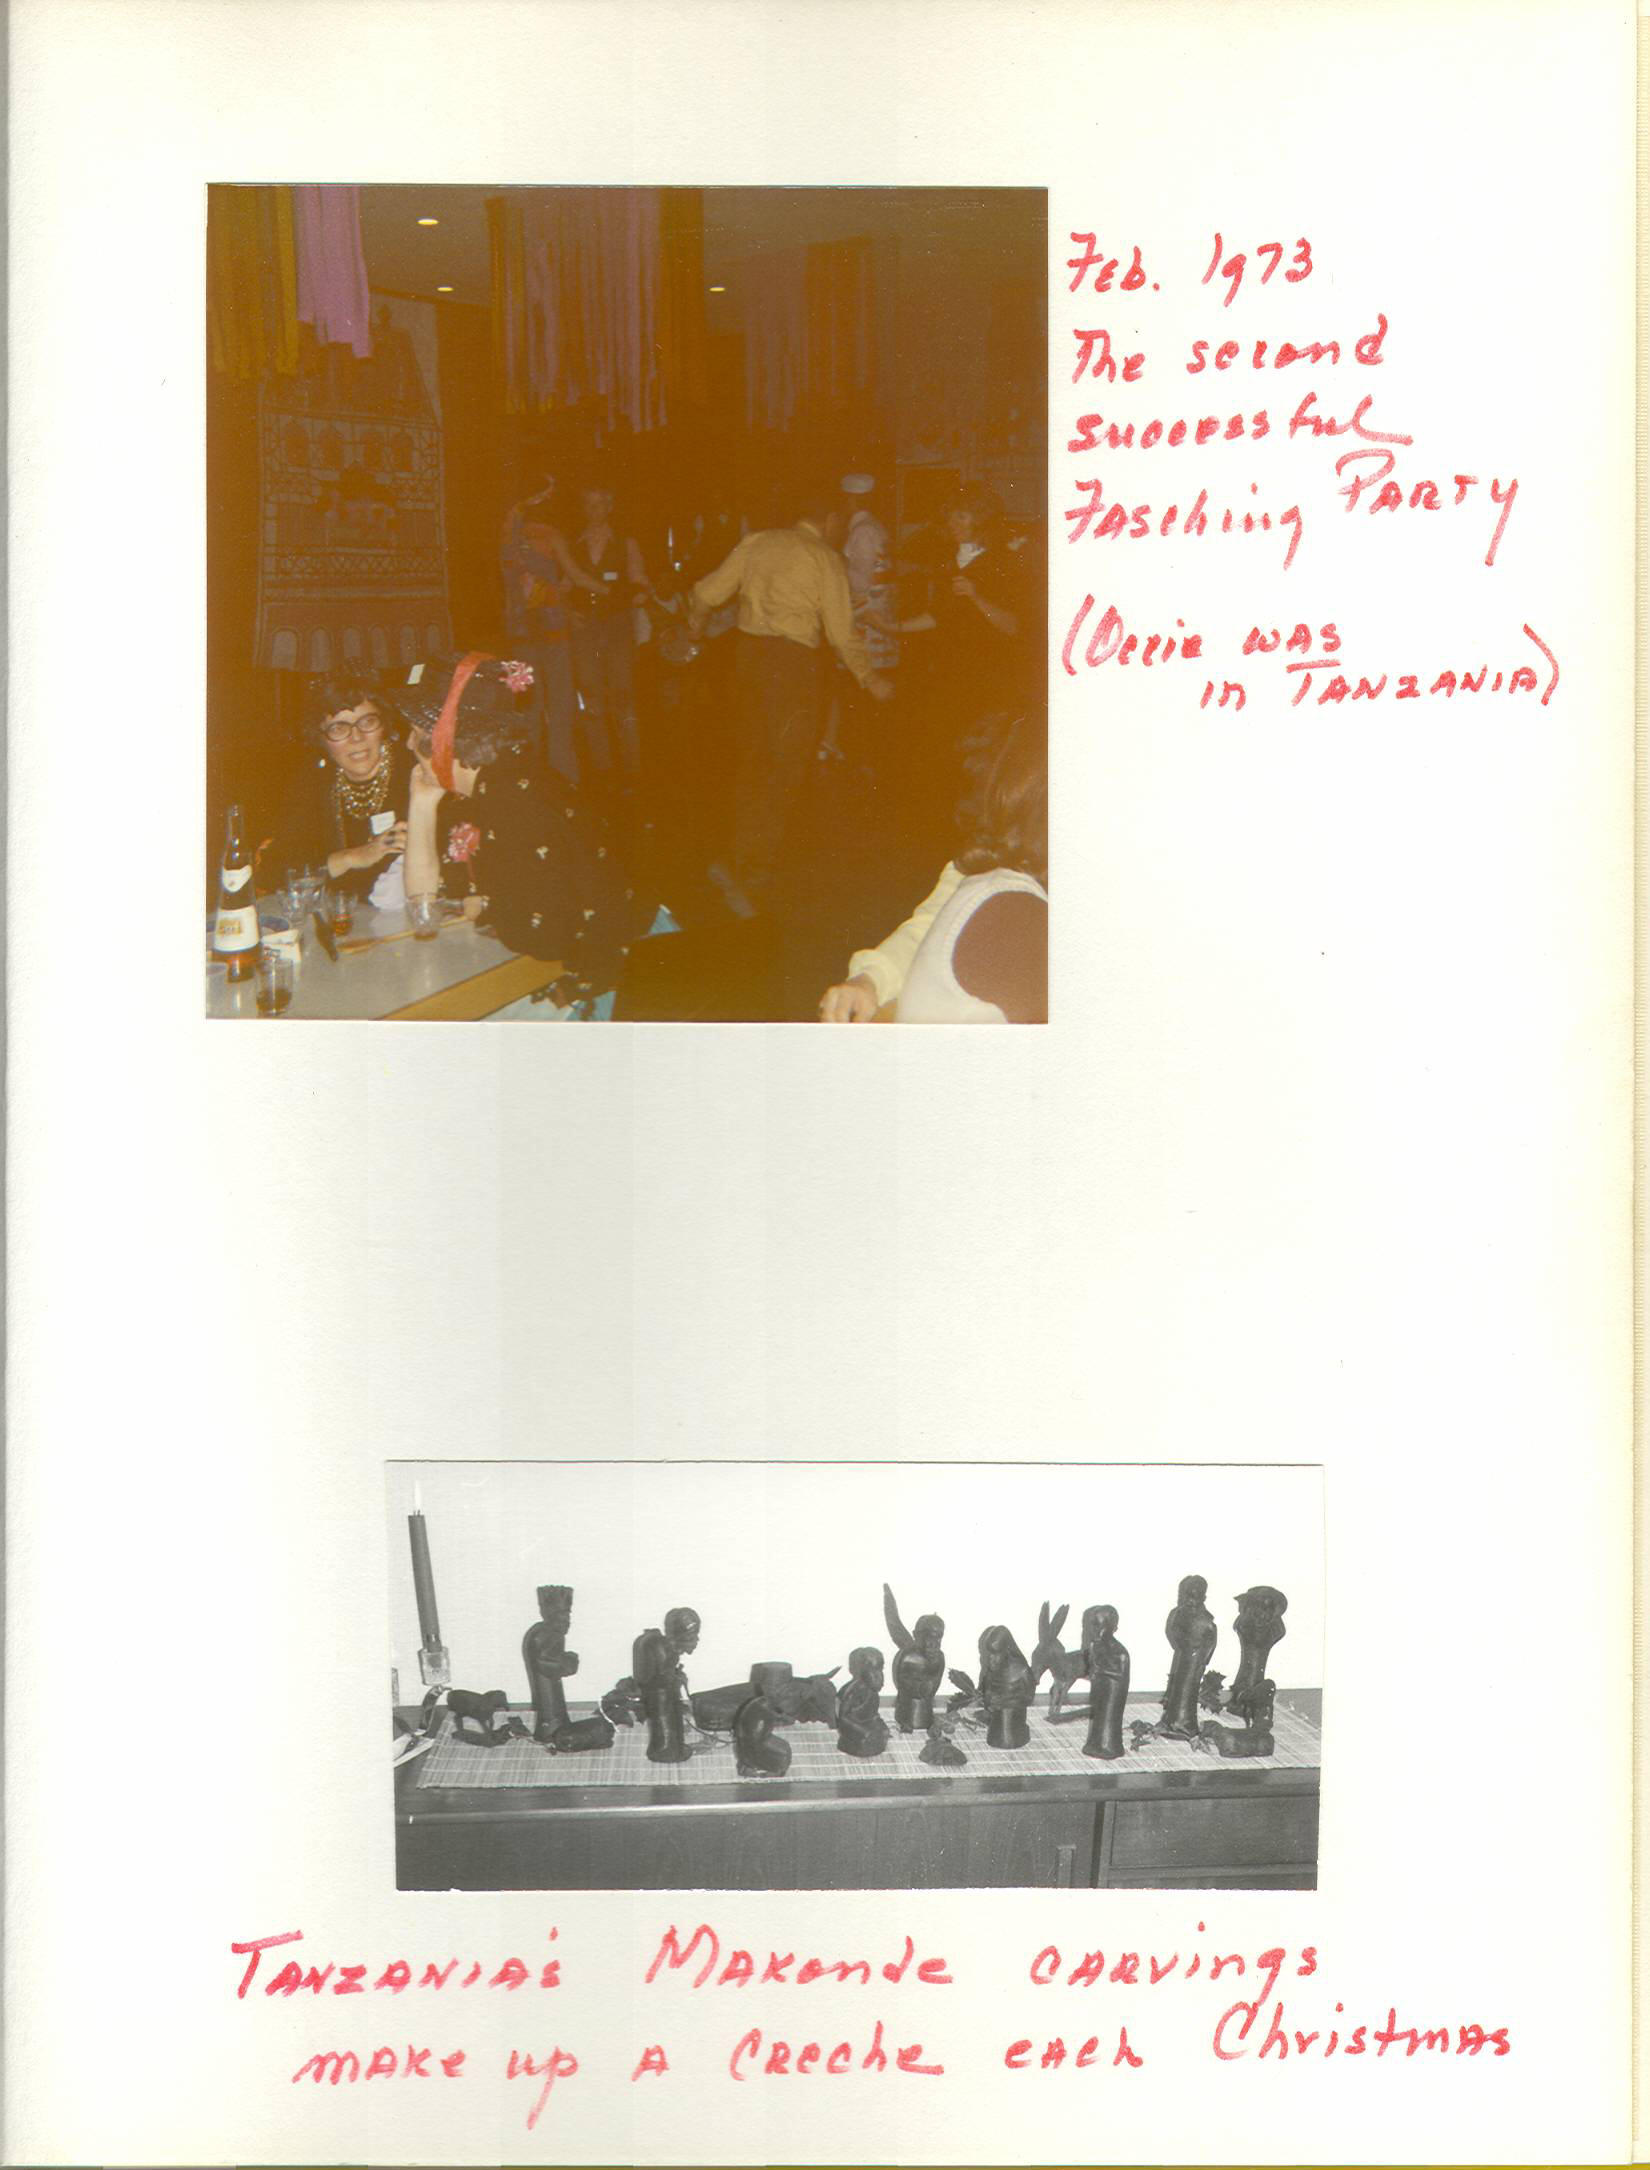 Feb. 1973
The second
successful
Fasching PARTY
(Occie WAS
in TANZANIA)
TANZANIA's MAKonde CARvings
MAKe up A CReche eAch ChristmAs